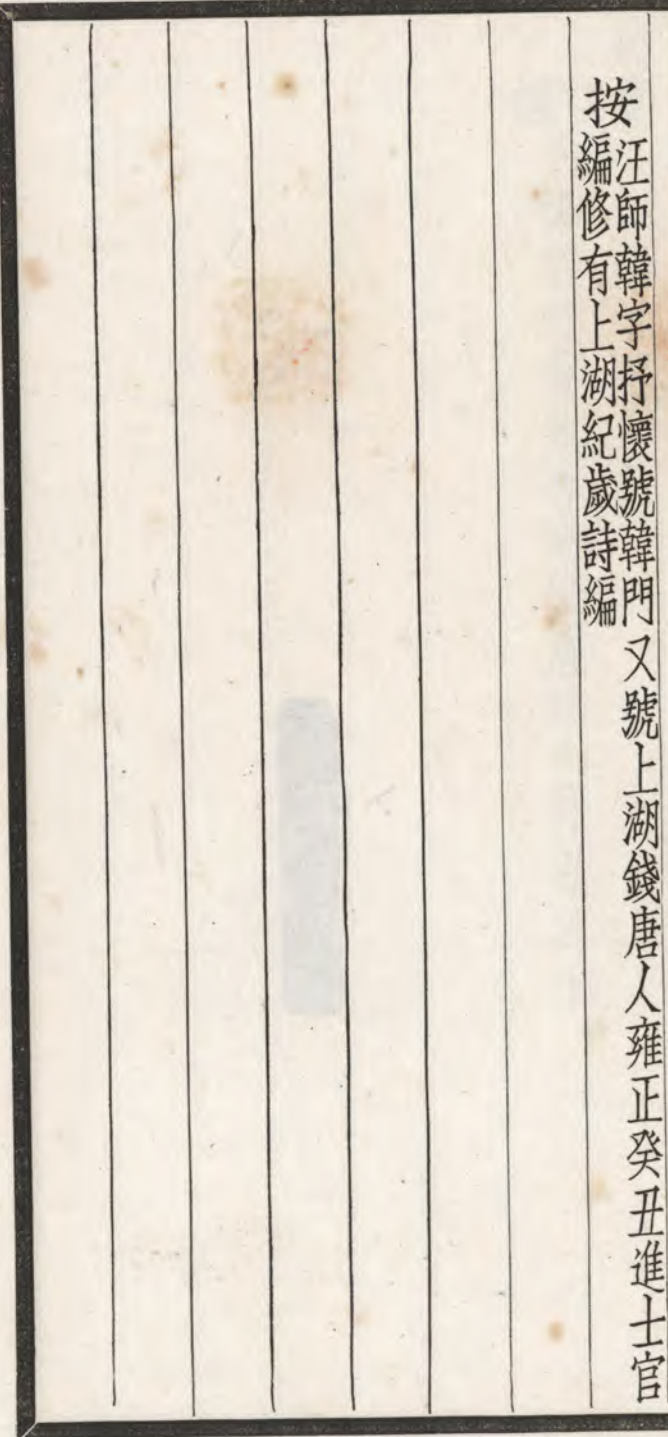 按汪師韓字抒懷號韓門又號上湖錢唐人雍正癸丑進士官
編修有上湖紀歲詩編